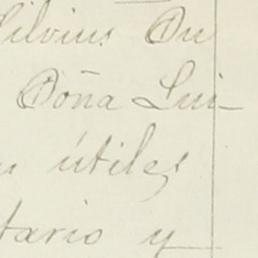 Silvius Du
Doña Lui-
útiles
tario y